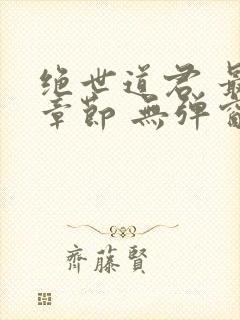 绝世道君 最
章節 無弹窗
齊藤賢